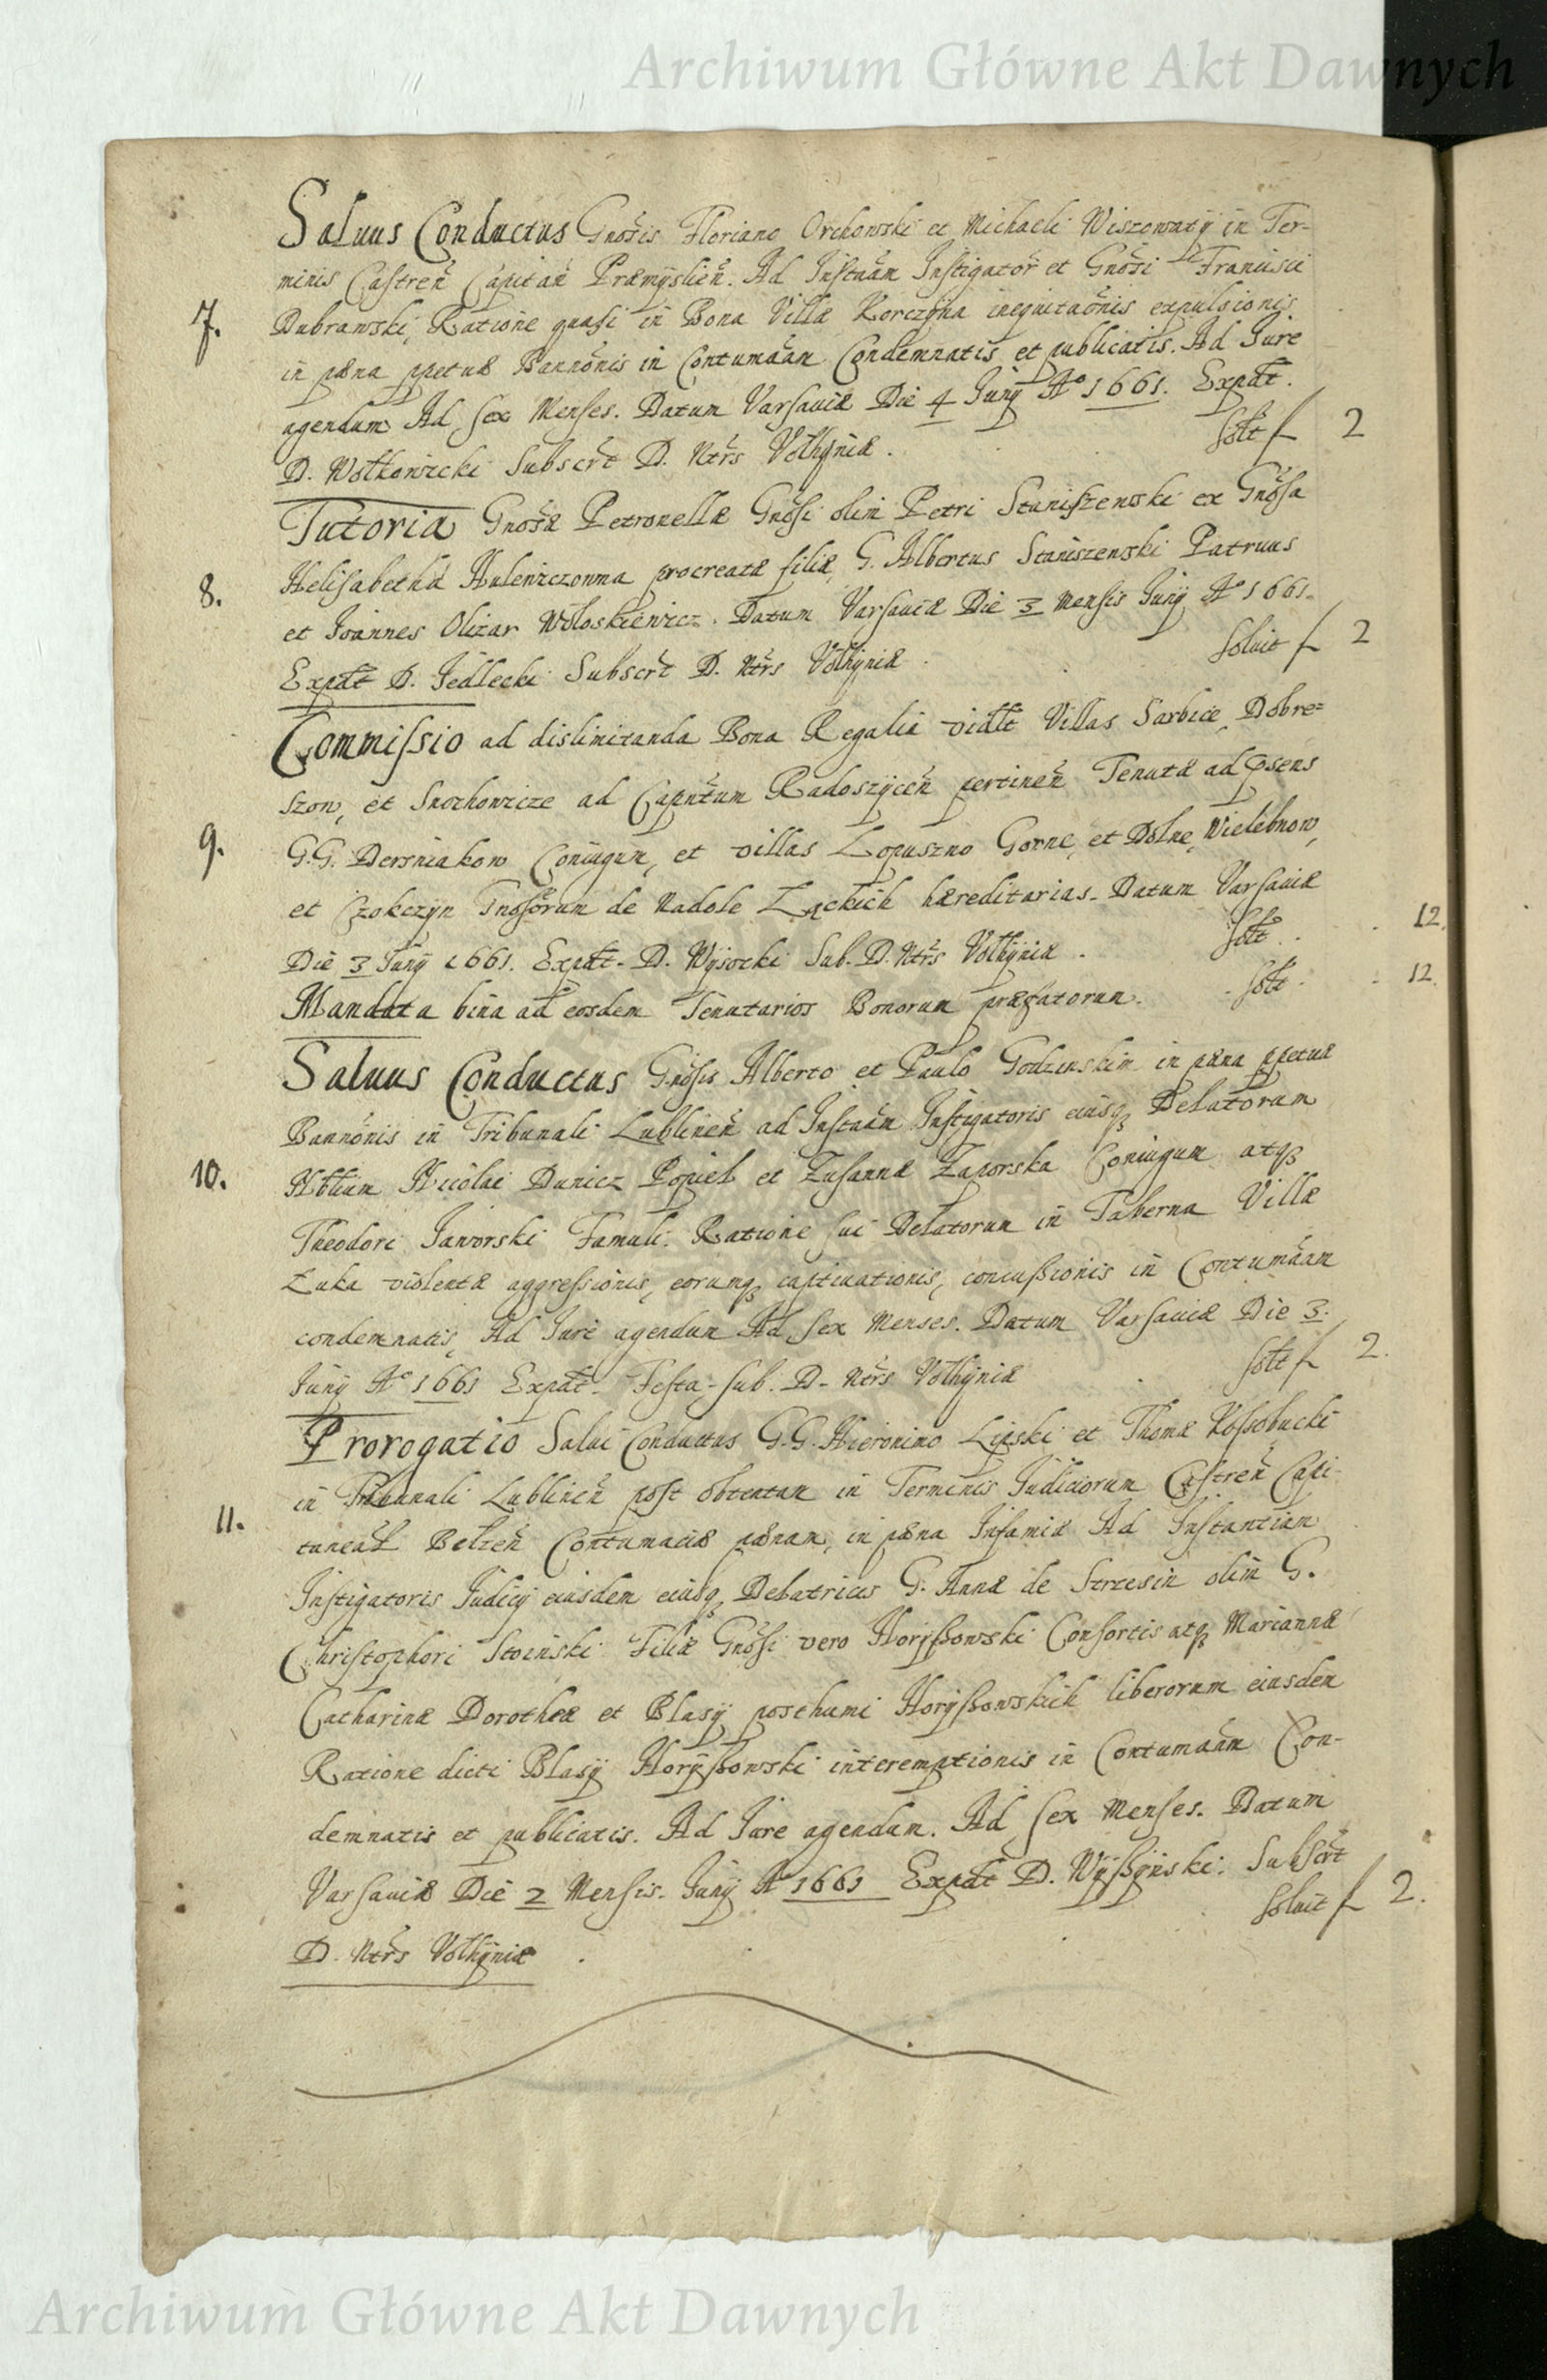 Archiwum Główne Akt Dawnych
Salvus Conductus Gnosis Floriano Orchowski et Michaeli Wiszowatÿ in Ter-
minis Castren Capitan Præmÿslien. Ad Instăan Instigator et Gnosi Francisci
7. Dubrawski, Ratione quasi in Bona Villæ Korczÿna inequitaonis expulsionis
in pæna ppetuæ Bannonis in Contumaăm Condemnatis et publicatis. Ad Iure
agendum Ad sex Menses. Datum Varsaviæ Die 4 Junÿ Aº 1661. Expdt.
D. Wołkowicki Subscrt D. Ntrs Volhÿniæ. solt f 2
Tutoria Gnosæ Petronellæ Gnosi olim Petri Staniszewski ex Gnosa
Helisabetha Hulewiczowna procreatæ filiæ, G. Albertus Staniszewski Patruus
8. et Joannes Olizar Wołoskiewicz. Datum Varsaviæ Die 3 Mensis Junÿ Aº 1661.
Expdt D. Jedlecki Subscrt D. Ntrs Volhÿniæ. soluit f 2
Commissio ad dislimitanda Bona Regalia vidlt Villas Sarbice, Dobre=
szow, et Snochowicze ad Capntum Radoszÿcen pertinen Tenutæ ad psens
9. G.G. Dersniakow Coniugum, et villas Lopuszno Gorne, et Dolne, Wielebnow,
et Czokczyn Gnosorum de Nadole Łąckich hæreditarias. Datum Varsaviæ
Die 3 Junÿ 1661. Expdt. D. Wÿsocki Sub. D. Ntrs Volhÿniæ. solt. 12.
Mandata bina ad eosdem Tenutarios Bonorum præfatorum. solt. 12
Salvus Conductus Gnosis Alberto et Paulo Godzenskim in pæna ppetuæ
Bannonis in Tribunali Lublinen ad Instăam Instigatoris eiusq Delatorum
10. Nbilium Nicolai Dunicz Popiel et Zusannæ Zaporska Coniugum atq
Theodori Jaworski Famuli. Ratione sui Delatorum in Taberna Villæ
Łuka violentæ aggressionis, eorumq captivationis, concussionis in Contumaăm
condemnatis, Ad Iure agendum Ad sex Menses. Datum Varsaviæ Die 3.
Junÿ Aº 1661 Expdt. Festa. sub. D. Ntrs Volhÿniæ solt f 2.
Prorogatio Salvi Conductus G.G. Hieronimo Lipski et Thomæ Kossobucki
in Tribunali Lublinen post obtentam in Terminis Judiciorum Castren Capi-
11. taneal Belzen Contumaciæ pænam, in pæna Infamiæ Ad Instantiam
Instigatoris Judicÿ eiusdem eiusq Delatricis G. Annæ de Strzesin olim G.
Christophori Stoinski Filiæ Gnosi vero Horÿszowski Consortis atq Mariannæ
Catharinæ Dorotheæ et Blasÿ posthumi Horÿszowskich liberorum eiusdem
Ratione dicti Blasÿ Horÿszowski interemptionis in Contumaăm Con-
demnatis et publicatis. Ad Iure agendum. Ad sex Menses. Datum
Varsaviæ Die 2 Mensis. Junÿ Aº 1661 Expdt D. Wÿszÿnski: Subscrt
D. Ntrs Volhÿniæ. soluit f 2.
Archiwum Główne Akt Dawnych